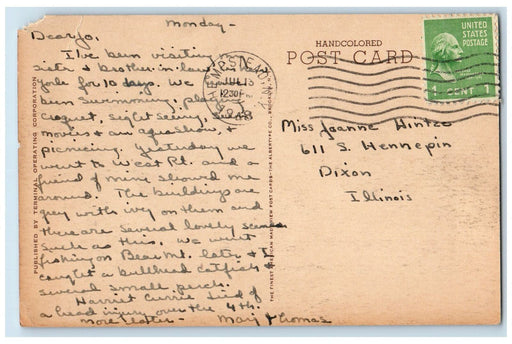 Monday -
Dear Jo,
I've been visiting
sister & brother-in-law
for 10 days. We
been swimming, play
croquet, sightseeing,
movies & an aquashow, &
picnicing. Yesterday we
went to West Pt. and a
friend of mine showed me
around. The buildings are
gray with ivy on them and
there are several lovely scenes
such as this. We went
fishing on Bear Mt. lake & I
caught a bullhead catfish &
several small perch.
Harriet Currie died of
a head injury over the 4th.
more later - Marj Thomas
PUBLISHED BY TERMINAL OPERATING CORPORATION
THE ALBERTYPE CO.,
HEMPSTEAD, N.Y.
JUL 13
1230P
HANDCOLORED
POST CARD
UNITED
STATES
POSTAGE
1 CENT 1
Miss Joanne Hintze
611 S. Hennepin
Dixon
Illinois